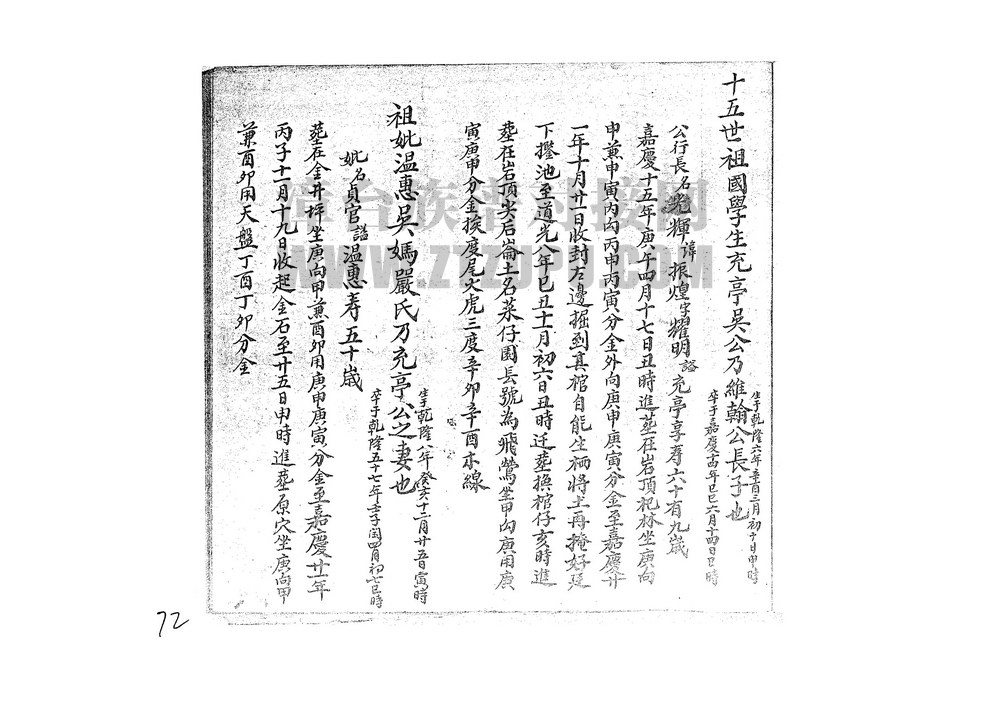 十五世祖國學生充亭吳公乃維翰公長子也
生于乾隆六年辛酉三月初十日申時
卒于嘉慶十四年己巳六月十四日巳時
公行長名光輝諱振煌字耀明謚充亭享壽六十有九歲
嘉慶十五年庚午四月十七日丑時進塟在岩頂圯林坐庚向
申兼申寅內勾丙申丙寅分金外向庚申庚寅分金至嘉慶廿
一年十月廿日收封左邊掘到真棺自能生栭將土再掩好廷
下擇池至道光八年巳丑十一月初六日丑時迁塟換棺仔亥時進
塟在岩頂尖后崙土名菜仔園長號為飛鶯坐甲向庚用庚
寅庚申分金挨度尾火虎三度辛卯辛酉木線
祖妣溫惠吳媽嚴氏乃充亭公之妻也
生于乾隆八年癸亥十二月廿五日寅時
卒于乾隆五十七年壬子閏四月初七巳時
妣名貞官謚溫惠寿五十歲
塟在金井坪坐庚向甲兼酉卯用庚申庚寅分金至嘉慶廿一年
丙子十一月十九日收起金石至廿五日申時進塟原穴坐庚向甲
兼酉卯用天盤丁酉丁卯分金
漳台族谱对接网
WWW.ZTZUPU.COM
72